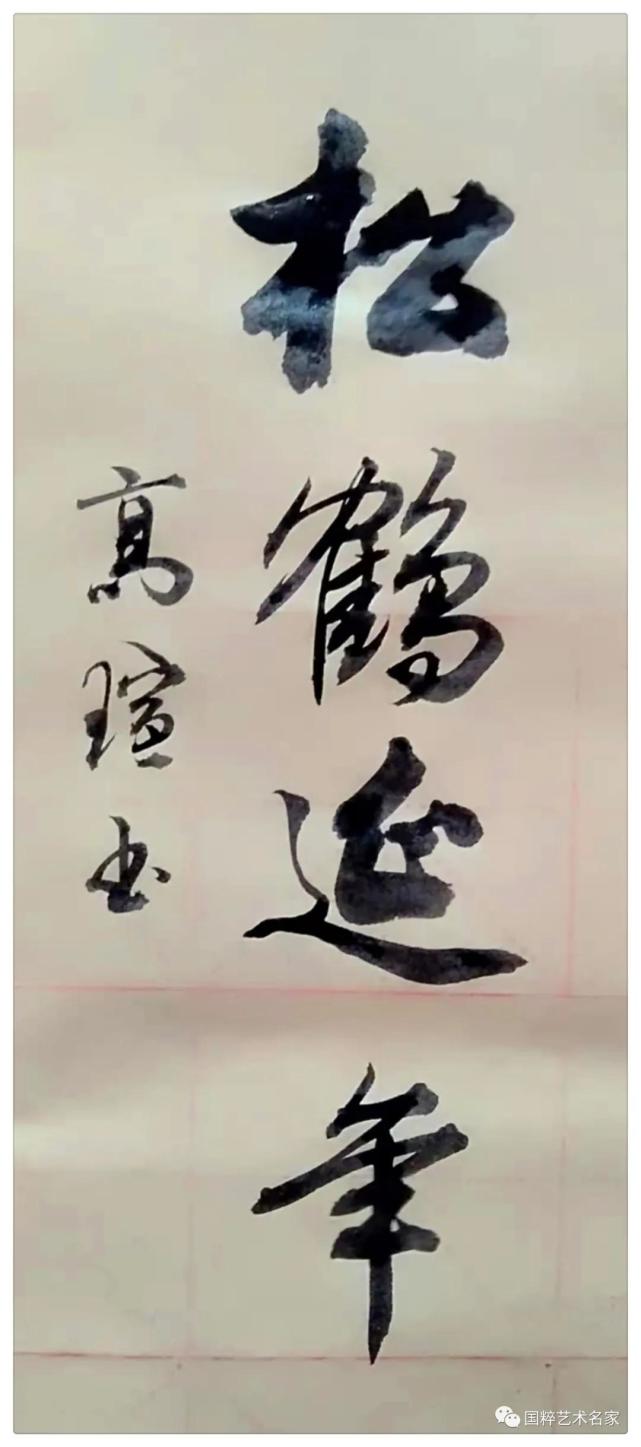 松鹤延年
高瑄书
国粹艺术名家